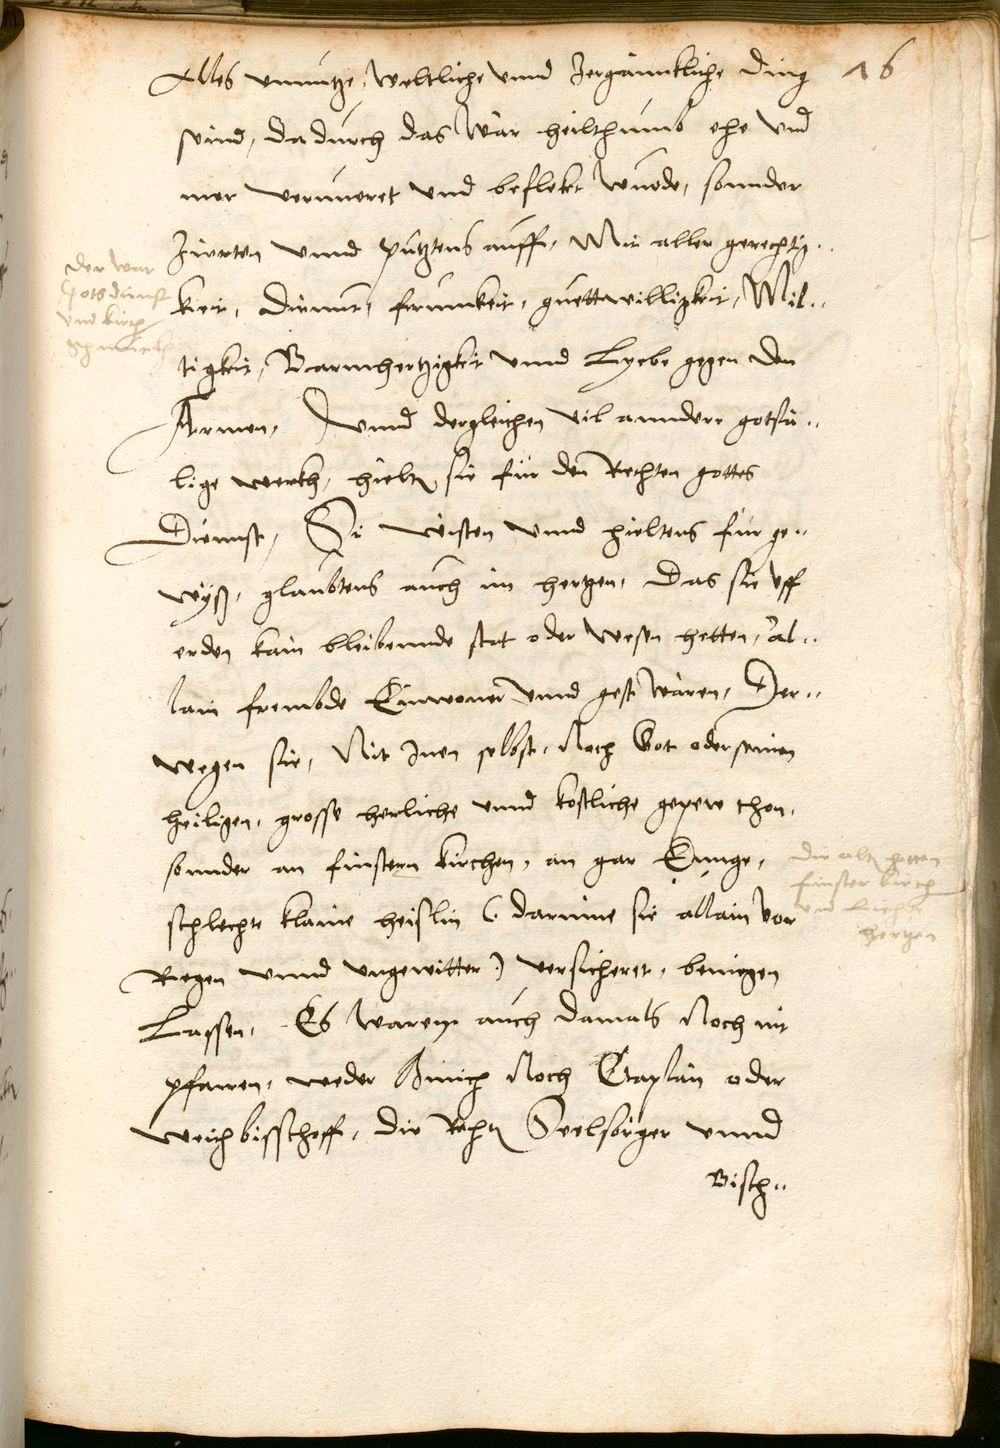 16
Alles unnutze, weltliche unnd zergännkliche ding
seind, dadurch das war heilthumb ehe und
mer veruneret und beflekt wurde, sonnder
zierten unnd putztens auff, Mit aller gerechtig..
keit, Diemut, frumkeit, guettwilligkeit, Mil..
tigkeit, Barmhertzigkeit unnd Lyebe gegen den
Armen, unnd dergleichen vil annderr gotsä..
lige werkh, hielten sie für den Rechten gottes
Diennst, Si wisten unnd hieltens für ge..
wyß, glaubtens auch im hertzen, Das sie uff
erden kain bleibennde stat oder wesen hetten, al..
lain frembde Einwoner unnd gest wären, Der..
wegen sie, Nit Inen selbst, Noch Got oder seinen
heiligen, grosse herliche unnd kostliche gepew thon,
sonnder an finstern kirchen, an gar Ennge,
schlechte klaine heislin (: darinne sie allain vor
Regen unnd ungewitter :) versicheret, beniegen
Lassen, Es waren auch damals Noch nit
pfarren, weder Münich Noch Caplän oder
Weichbisschoff, die Rechten Seelsorger unnd
Bisch..
der war
Gotsdiennst
und kirch
schmuckh
die alten hetten
finster kirchen
und Liechte
hertzen